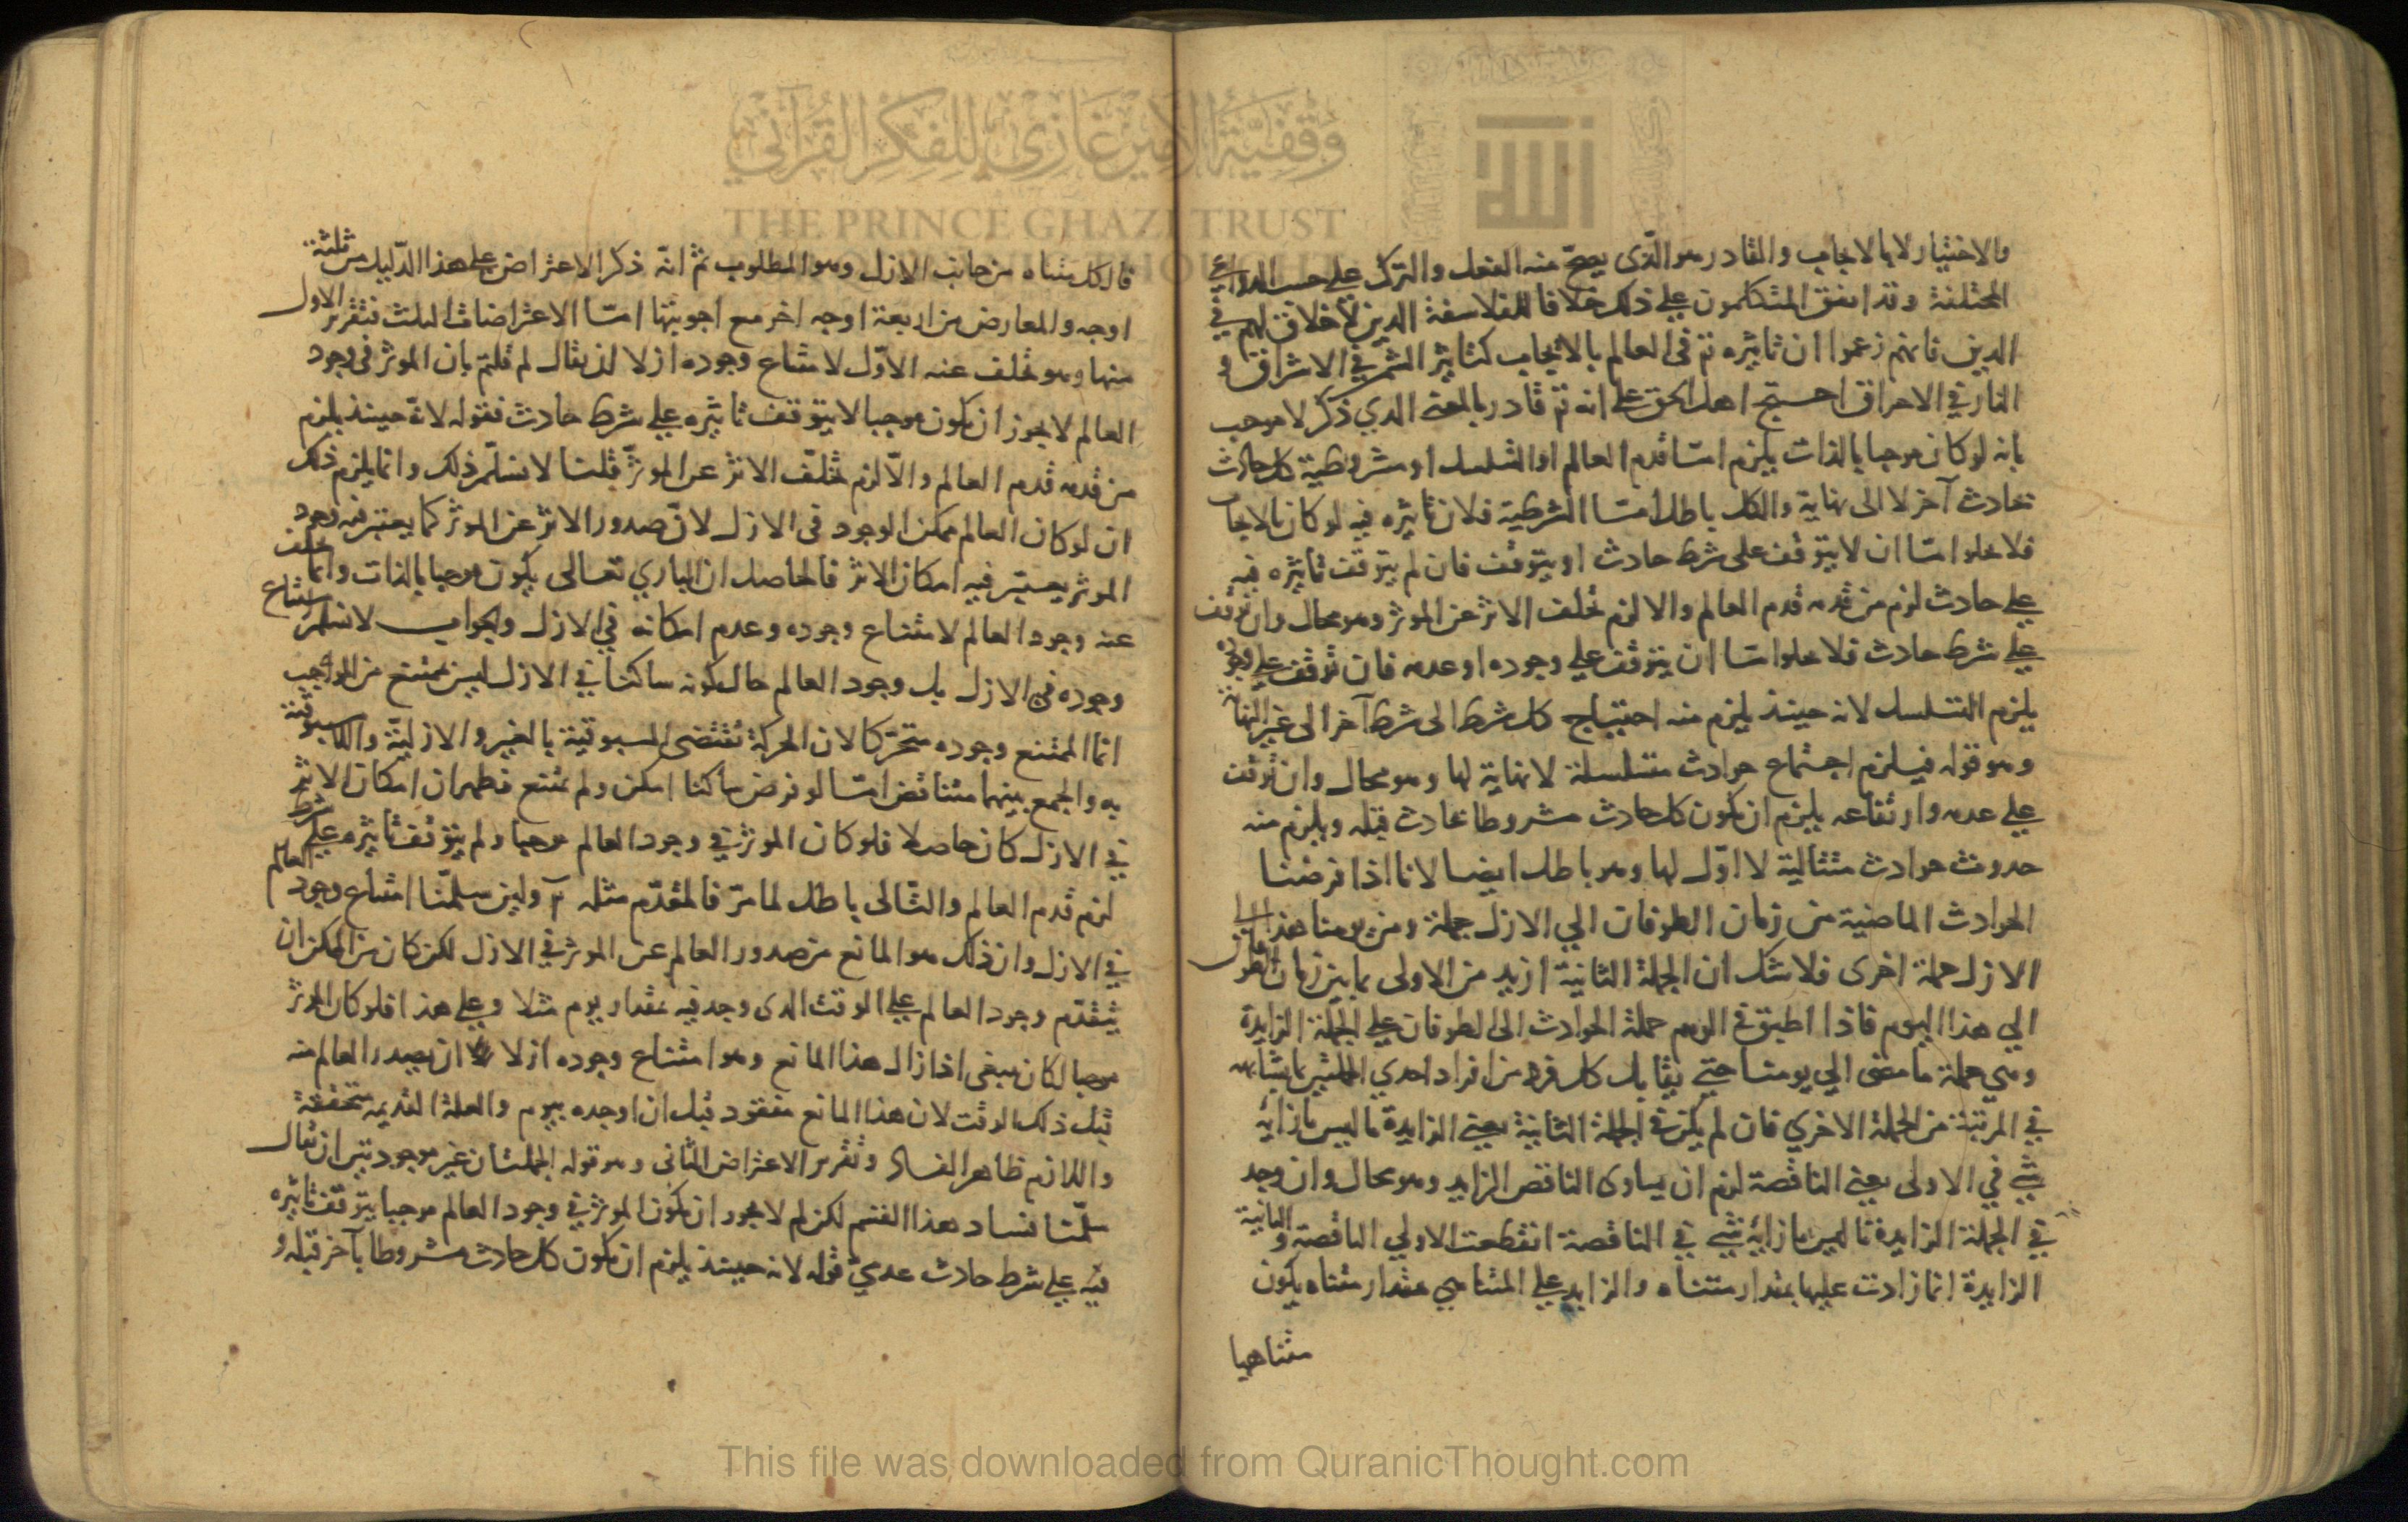 والاختيار لا بالايجاب والقادر هو الذي يصح منه الفعل والترك على حسب الدواعي
المختلفة وقد اتفق المتكلمون على ذلك خلافا للفلاسفة الدين لا خلاق لهم في
الدين فانهم زعموا ان تاثيره تع فى العالم بالايجاب كتاثير الشمس في الاشراق و
النار في الاحراق احتج اهل الحق على انه تع قادر بالمعنى الدي ذكر لا موجب
بانه لو كان موجبا بالذات يلزم امّا قدم العالم او التسلسل او مشروطية كل حادث
بحادث آخر لا الى نهاية والكل باطل امّا الشرطية فلان تاثيره فيه لو كان بالايجاب
فلا يخلوا امّا ان لا يتوقف على شرط حادث او يتوقف فان لم يتوقف تاثيره فيه
على حادث لزم من قدمه قدم العالم والا لزم تخلف الاثر عن الموثر وهو محال وان توقف
على شرط حادث فلا يخلوا امّا ان يتوقف على وجوده او عدمه فان توقف على وجوده
يلزم التسلسل لانه حينئذ يلزم منه احتياج كل شرط الى شرط آخر الى غير النهاية
وهو قوله فيلزم اجتماع حوادث متسلسلة لا نهاية لها وهو محال وان توقف
على عدمه وارتفاعه يلزم ان يكون كل حادث مشروطا بحادث قبله ويلزم منه
حدوث حوادث متتالية لا اوّل لها وهو باطل ايضا لانا اذا فرضنا
الحوادث الماضية من زمان الطوفان الي الازل جملة ومن يومنا هذا الي
الازل جملة اخرى فلا شك ان الجملة الثانية ازيد من الاولى بما بين زمان الطوفان
الي هذا اليوم فاذا اطبق في الوهم جملة الحوادث الى الطوفان على الجملة الزايدة
وهي جملة ما مضى الي يومنا حتى يقابل كل فرد من افراد احدي الجملتين بما يشابهه
في المرتبة من الجملة الاخري فان لم يكن في الجملة الثانية يعني الزايدة ما ليس بازائه
شئ في الاولى يعني الناقصة لزم ان يساوى الناقص الزايد وهو محال وان وجد
في الجملة الزايدة ما ليس بازائه شئ في الناقصة انقطعت الاولي الناقصة والثانية
الزايدة انما زادت عليها بمقدار متناه والزايد على المتناهي بمقدار متناه يكون
متناهيا
فالكل متناه من جانب الازل وهو المطلوب ثم انه ذكر الاعتراض على هذا الدليل من ثلثة
اوجه والمعارض من اربعة اوجه اخر مع اجوبتها امّا الاعتراضات الثلث فتقرير الاول
منها وهو تخلف عنه الاوّل لامتناع وجوده ازلا ان يقال لم قلتم بان الموثر فى وجود
العالم لا يجوز ان يكون موجبا لا يتوقف تاثيره على شرط حادث فقوله لانه حينئذ يلزم
من قدمه قدم العالم والّا لزم تخلّف الاثر عن الموثر قلنا لا نسلّم ذلك وانما يلزم ذلك
ان لو كان العالم ممكن الوجود فى الازل لانّ صدور الاثر عن الموثر كما يعتبر فيه وجود
الموثر يعتبر فيه امكان الاثر فالحاصل ان الباري تعالى يكون موجبا بالذات وانما تخلف
عنه وجود العالم لامتناع وجوده وعدم امكانه في الازل والجواب لا نسلم امتناع
وجوده فى الازل بل وجود العالم حال كونه ساكنا في الازل ليس بممتنع من الموجب
انما الممتنع وجوده متحرّكا لان الحركة تقتضى المسبوقية بالغير والازلية واللامسبوقية
به والجمع بينهما متناقض امّا لو فرض ساكنا امكن ولم يمتنع فظهر ان امكان الاثر
في الازل كان حاصلا فلو كان الموثر في وجود العالم موجبا ولم يتوقف تاثيره على شرط
لزم قدم العالم والتّالى باطل لما مرّ فالمقدّم مثله ولين سلمّنا امتناع وجود العالم
في الازل وان ذلك هو المانع من صدور العالم عن الموثر في الازل لكن كان من الممكن ان
يتقدّم وجود العالم على الوقت الدى وجد فيه بمقدار يوم مثلا وعلى هذا فلو كان الموثر
موجبا لكان ينبغى اذا زال هذا المانع وهو امتناع وجوده ازلا ان يصدر العالم منه
قبل ذلك الوقت لان هذا المانع مفقود قبل ان اوجده بيوم والعلة القديمة متحققة
واللازم ظاهر الفساد وتقرير الاعتراض الثانى وهو قوله الجملتان غير موجودتين ان يقال
سلّمنا فساد هذا القسم لكن لم لا يجوز ان يكون الموثر في وجود العالم موجبا يتوقف تاثيره
فيه على شرط حادث عدميّ قوله لانه حينئذ يلزم ان يكون كل حادث مشروطا بآخر قبله و
وقفية الأمير غازي للفكر القرآني
THE PRINCE GHAZI TRUST
This file was downloaded from QuranicThought.com